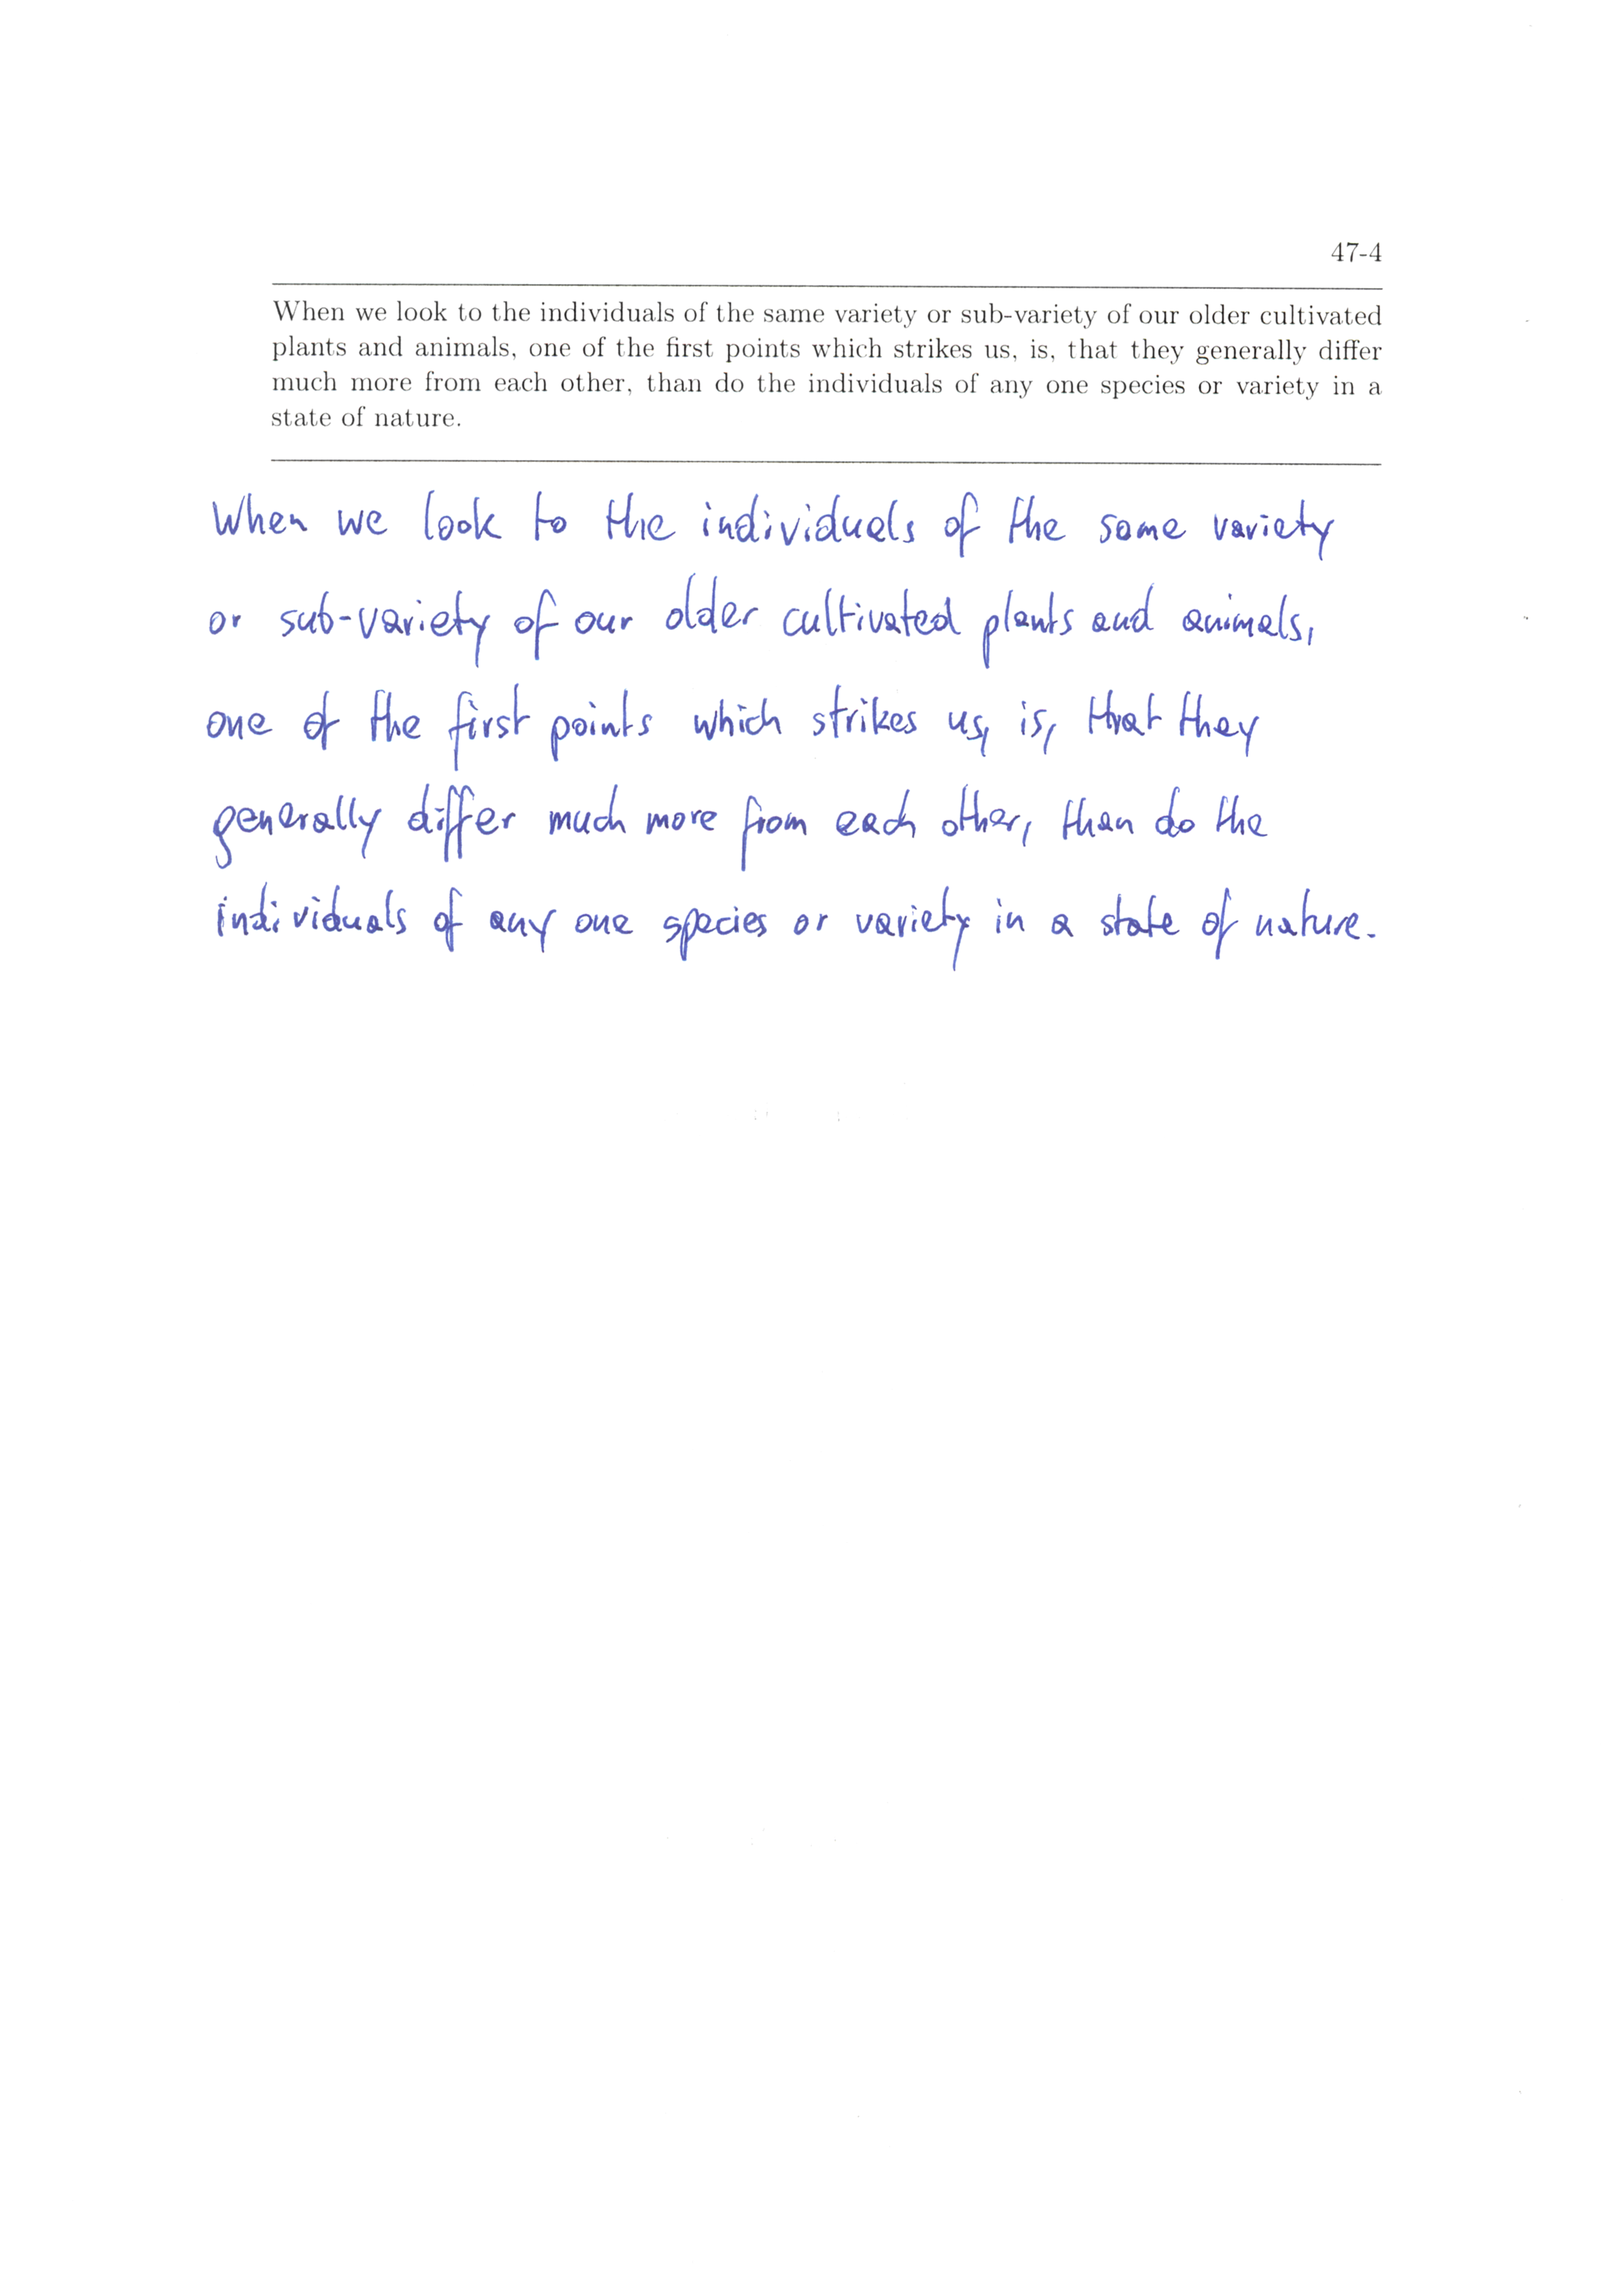 47-4
When we look to the individuals of the same variety or sub-variety of our older cultivated
plants and animals, one of the first points which strikes us, is, that they generally differ
much more from each other, than do the individuals of any one species or variety in a
state of nature.
When we look to the individuals of the same variety
or sub-variety of our older cultivated plants and animals,
one of the first points which strikes us, is, that they
generally differ much more from each other, than do the
individuals of any one species or variety in a state of nature.